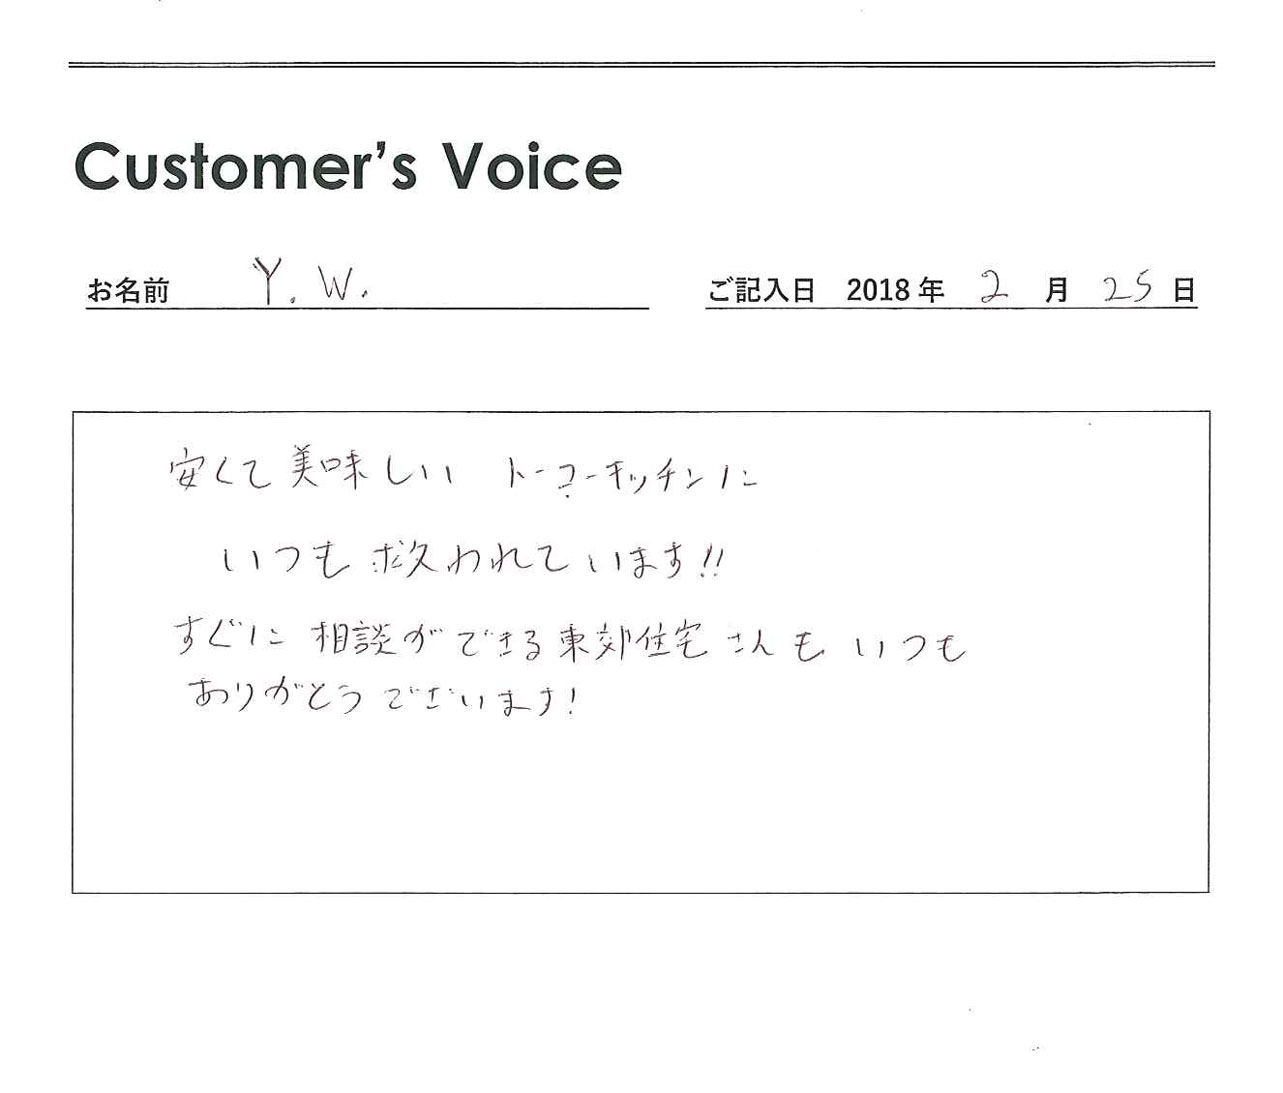 Customer's Voice
お名前 Y. W. ご記入日 2018年 2 月 25 日
安くて美味しい トーコーキッチンに
いつも救われています!!
すぐに相談ができる東郊住宅さんも いつも
ありがとうございます!